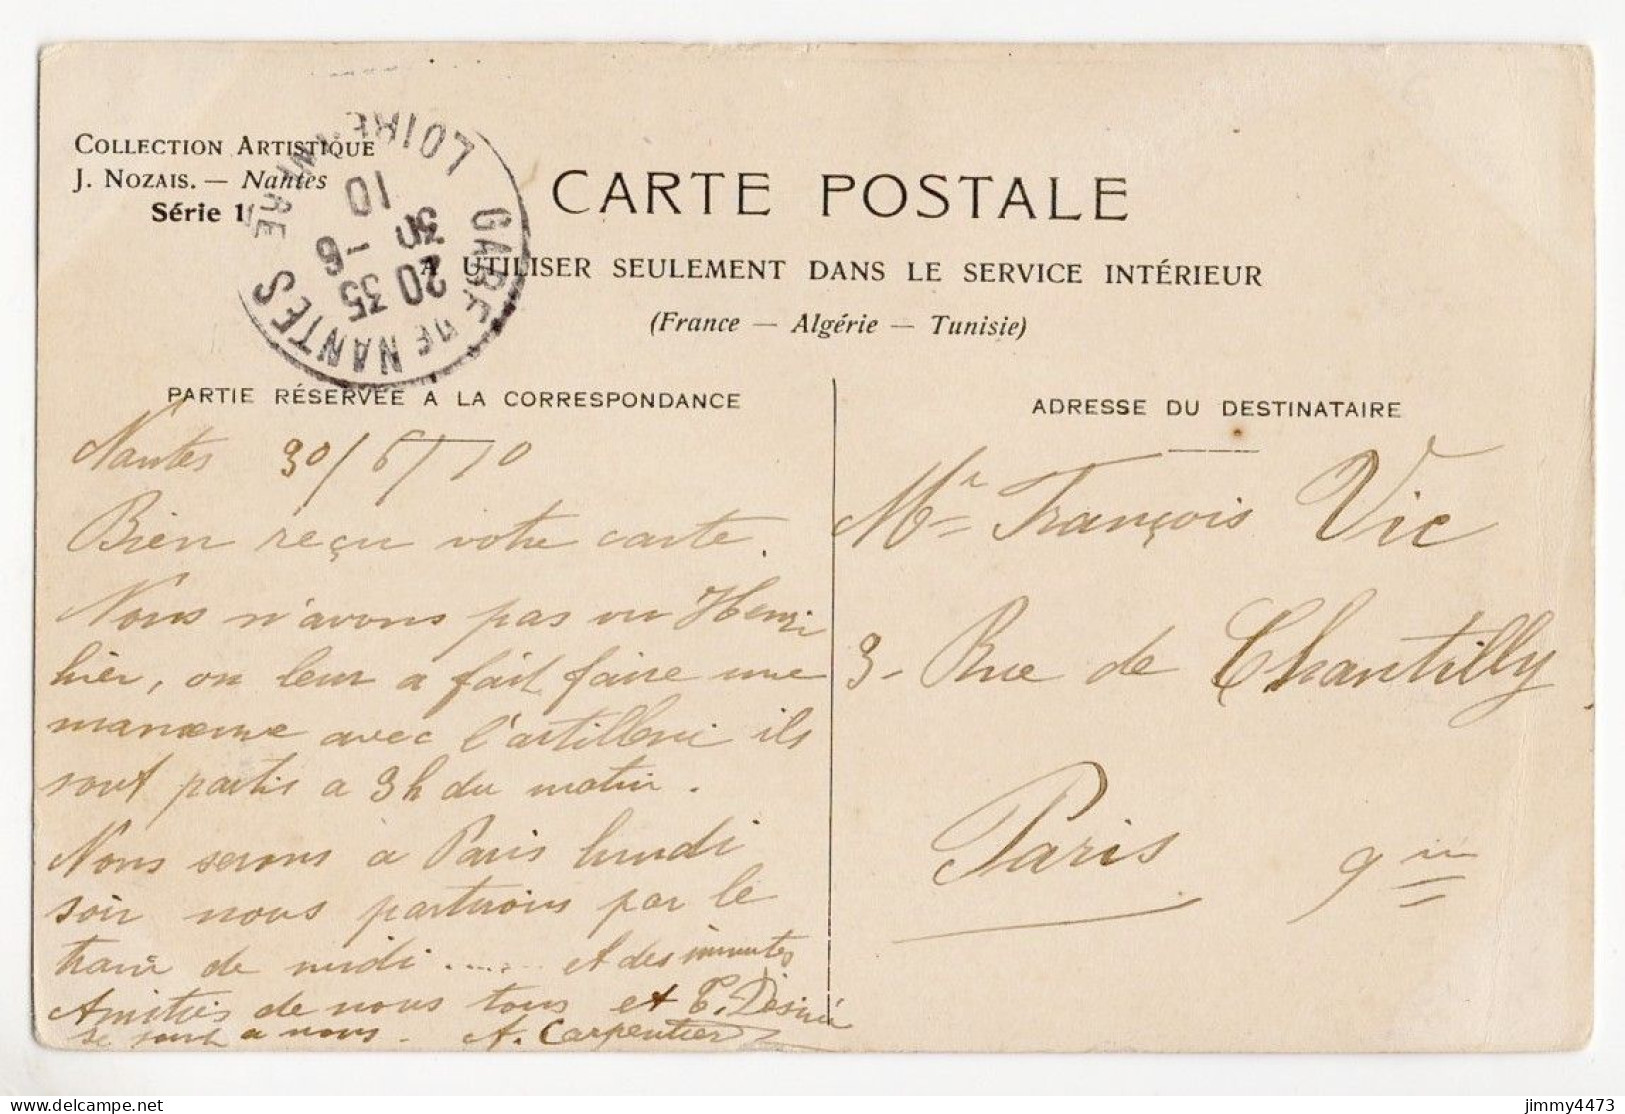 COLLECTION ARTISTIQUE
J. NOZAIS. — Nantes
Série 1
GARE DE NANTES
LOIRE INFRE
20 35
30 -6
10
CARTE POSTALE
A UTILISER SEULEMENT DANS LE SERVICE INTÉRIEUR
(France — Algérie — Tunisie)
PARTIE RÉSERVÉE A LA CORRESPONDANCE
Nantes 30/6/10
Bien reçu votre carte.
Nous n'avons pas vu Henri
hier, on leur a fait faire une
manœuvre avec l'artillerie ils
sont partis a 3h du matin.
Nous serons à Paris lundi
soir nous partirons par le
train de midi ...... et des minutes
Amitiés de nous tous et T. Désiré
se joint a nous. A. Carpentier
ADRESSE DU DESTINATAIRE
Mr François Vic
3 - Rue de Chantilly
Paris 9me
jimmy4473
delcampe.net